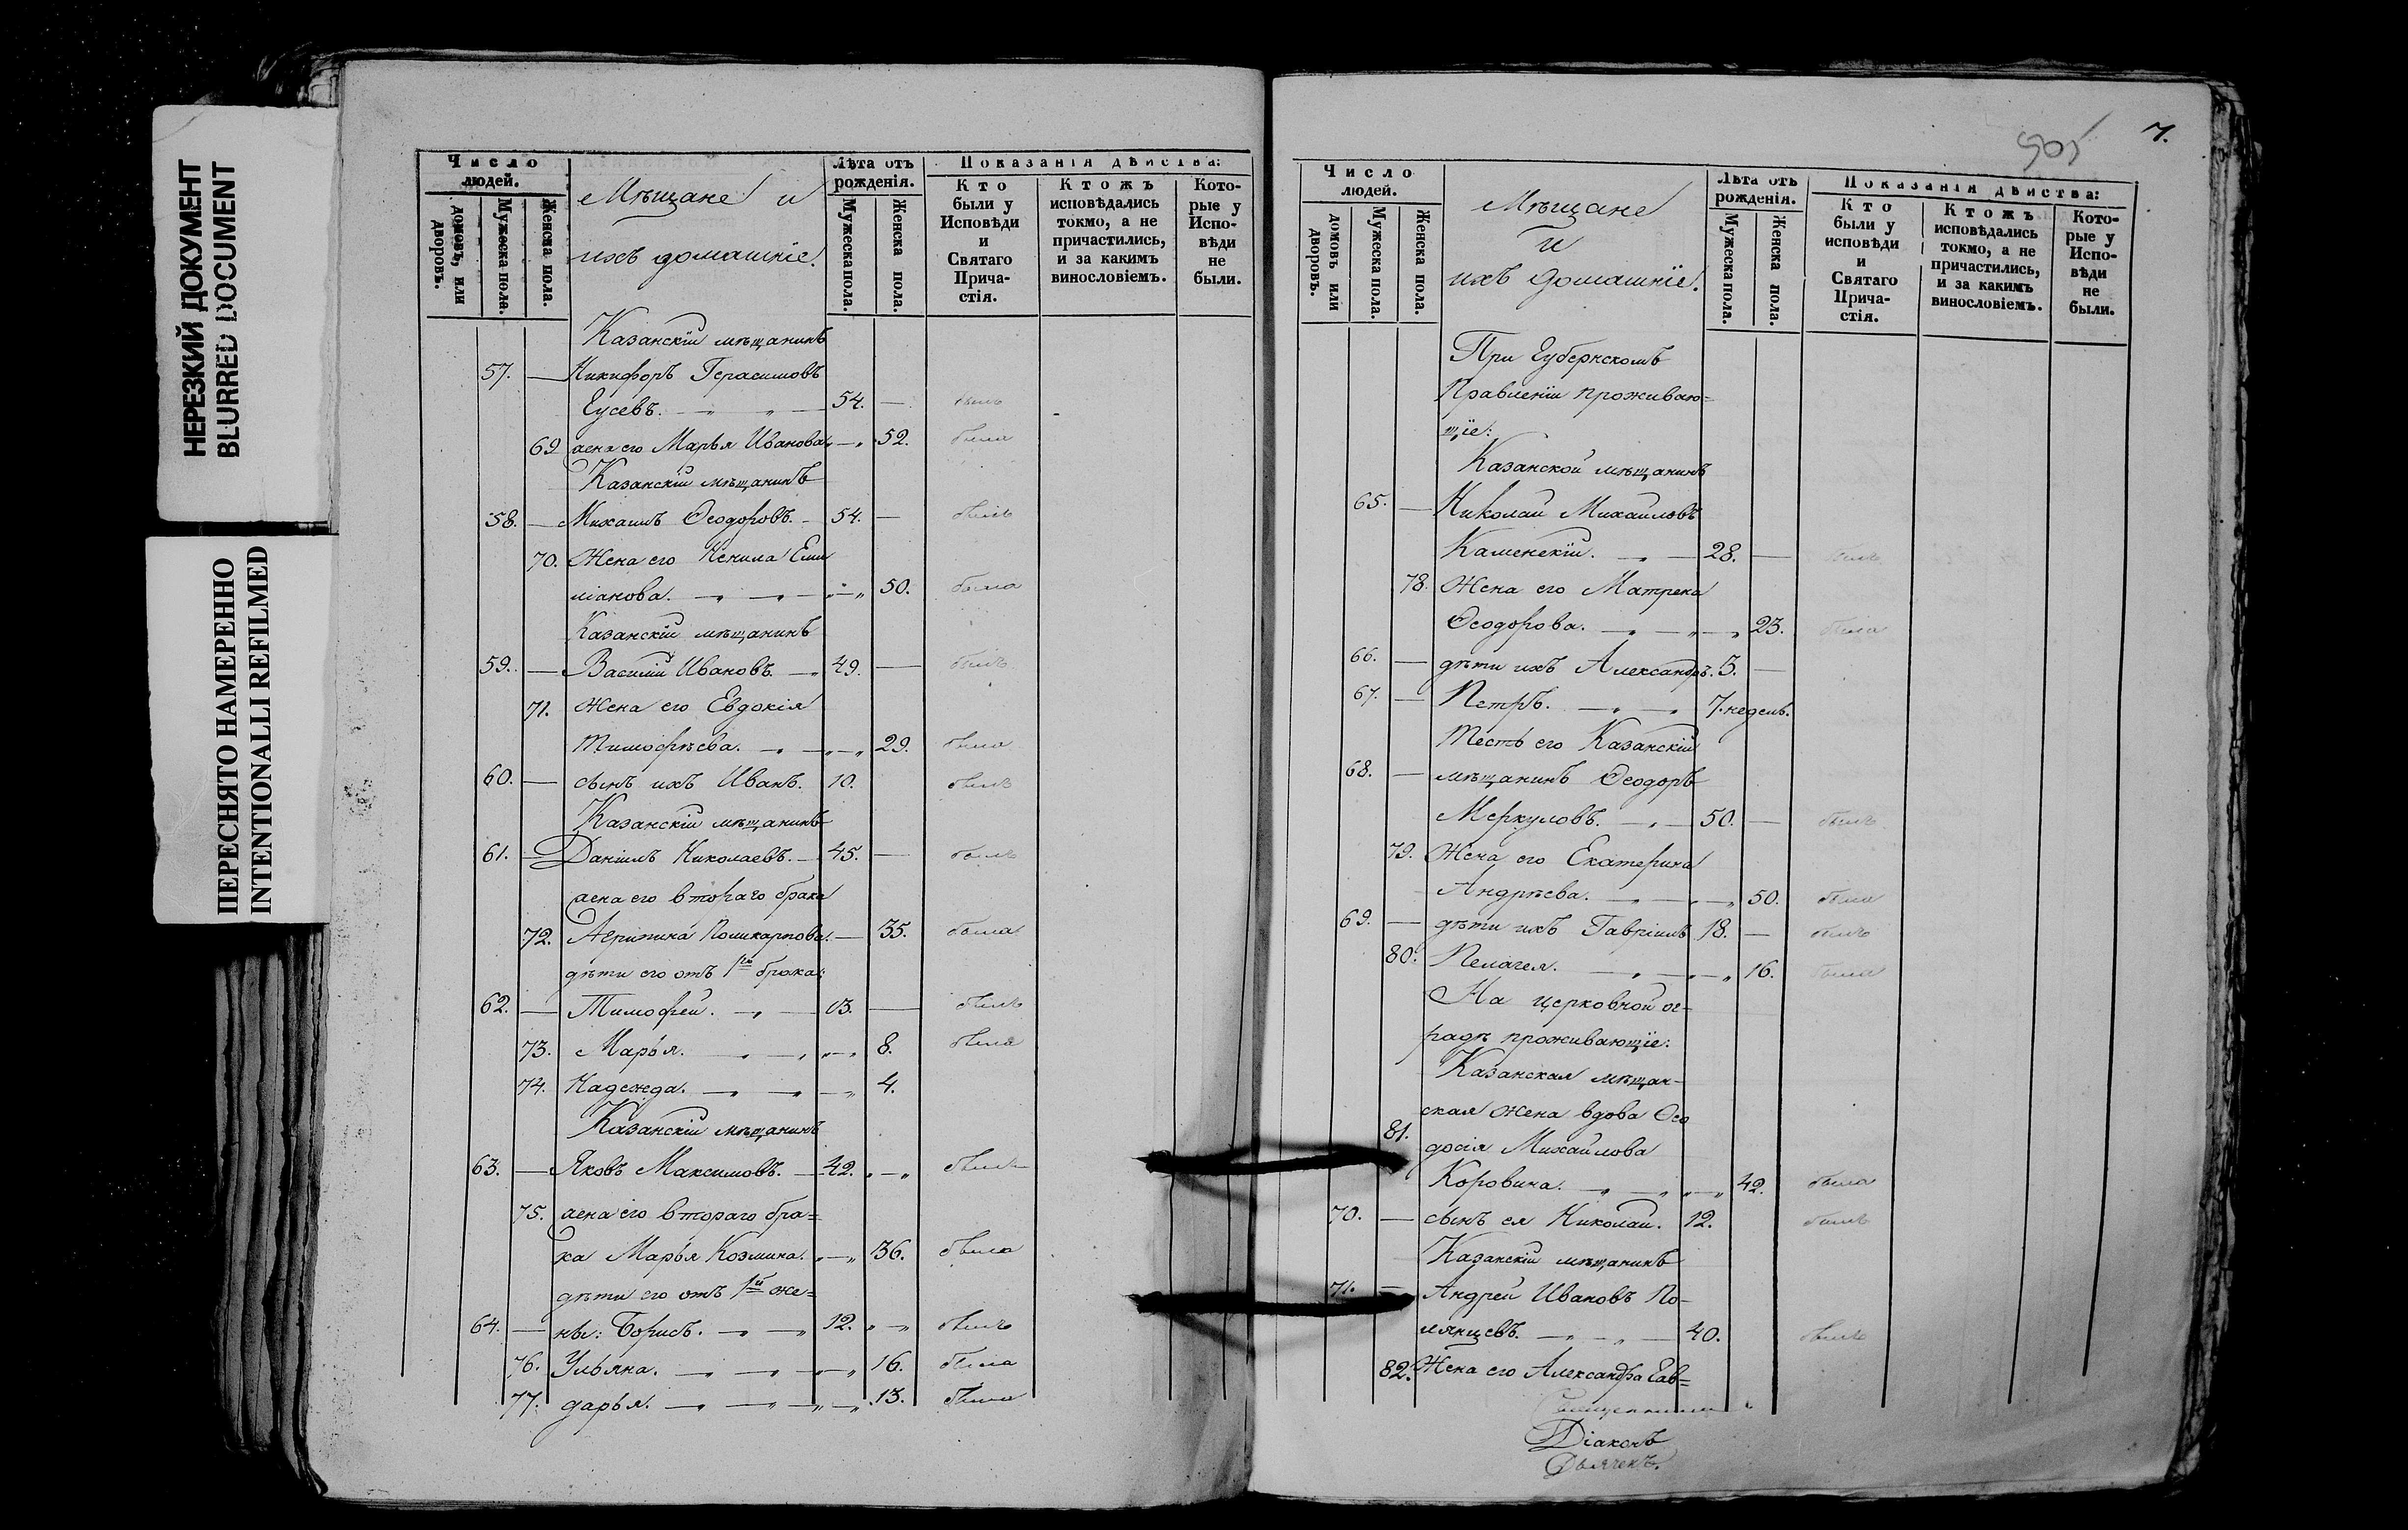 НЕРЕЗКИЙ ДОКУМЕНТ
BLURRED DOCUMENT
ПЕРЕСНЯТО НАМЕРЕННО
INTENTIONALLI REFILMED
Число людей.
домовъ, или дворовъ.
Мужеска пола.
Женска пола.
Мѣщане и
ихъ домашніе.
Лѣта отъ рожденія.
Мужеска пола.
Женска пола.
Показанія дѣиства:
Кто были у Исповѣди и Святаго Прича-стія.
Ктожъ исповѣдались токмо, а не причастились, и за какимъ винословіемъ.
Кото-рые у Испо-вѣди не были.
Казанскій мѣщанинъ
57. — Никифоръ Герасимовъ
Гусевъ. 54. — былъ
69 жена его Марья Иванова 52. была
Казанскій мѣщанинъ
58. — Михаилъ Ѳеодоровъ. 54. — былъ
70. Жена его Ненила Еми
ліанова. 50. была
Казанскій мѣщанинъ
59. — Василій Ивановъ. 49. — былъ
71. Жена его Евдокія
Тимофѣева. 29. была
60. — сынъ ихъ Иванъ. 10. былъ
Казанскій мѣщанинъ
61. — Даніилъ Николаевъ. 45. — былъ
жена его втораго брака
72. Агрипина Поликарпова. — 35. была
дѣти его отъ 1го брака:
62. — Тимофей. 13. — былъ
73. Марья. 8. была
74. Надежда. 4.
Казанскій мѣщанинъ
63. — Яковъ Максимовъ. 42. былъ
75. жена его втораго бра=
ка Марья Козмина. 36. была
дѣти его отъ 1й же=
64. — ны: Борисъ. 12. былъ
76. Ульяна. 16. была
77. дарья. 13. была
505
7.
Число людей.
домовъ или дворовъ.
Мужеска пола.
Женска пола.
Мѣщане
и
ихъ домашніе.
Лѣта отъ рожденія.
Мужеска пола.
Женска пола.
Показанія дѣиства:
Кто были у исповѣди и Святаго Прича-стія.
Ктожъ исповѣдались токмо, а не причастились, и за какимъ винословіемъ.
Кото-рые у Испо-вѣди не были.
При Губернскомъ
Правленіи проживаю=
щіе:
Казанской мѣщанинъ
65. — Николай Михайловъ
Каменскій. 28. — былъ
78. Жена его Матрена
Ѳеодорова. 23. была
66. — дѣти ихъ Александръ. 3. —
67. — Петръ. 7. недель.
Тесть его Казанскій
68. — мѣщанинъ Ѳеодоръ
Меркуловъ. 50. — былъ
79. Жена его Екатерина
Андрѣева. 50. была
69. — дѣти ихъ Гавріилъ 18. — былъ
80. Пелагея. 16. была
На церковной ог-
радѣ проживающіе:
Казанская мѣщан-
ская жена вдова Ѳео
81. досія Михайлова
Коровина. 42. была
70. — сынъ ея Николай. 12. былъ
Казанскій мѣщанинъ
71. — Андрей Ивановъ По-
лянцевъ. 40. былъ
82. Жена его Александра Гав=
Діаконъ
Дьячекъ.